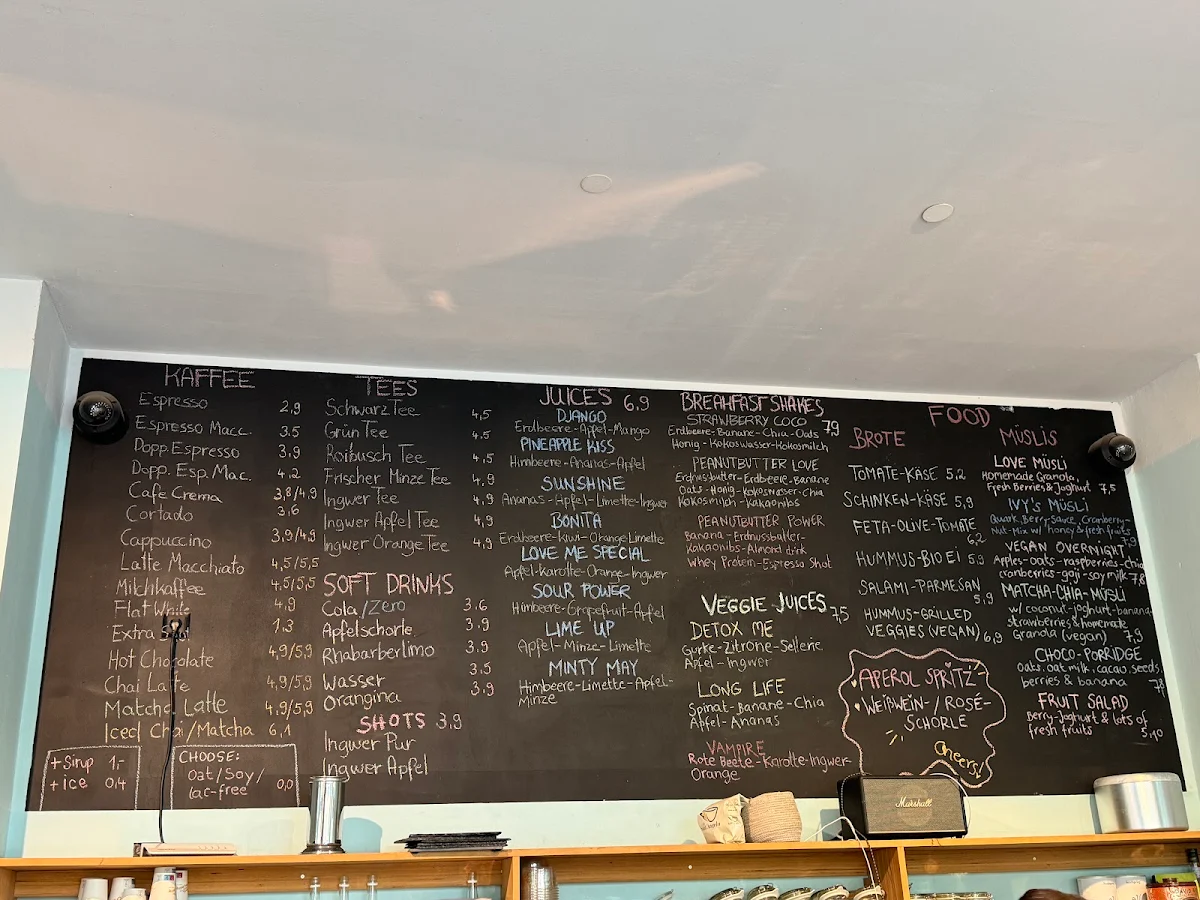 KAFFEE
Espresso 2,9
Espresso Macc. 3.5
Dopp. Espresso 3,9
Dopp. Esp. Mac. 4.2
Cafe Crema 3,8/4,9
Cortado 3,6
Cappuccino 3,9/4,9
Latte Macchiato 4,5/5,5
Milchkaffee 4,5/5,5
Flat White 4,9
Extra 1,3
Hot Chocolate 4,9/5,9
Chai Latte 4,9/5,9
Matcha Latte 4,9/5,9
Iced Chai/Matcha 6,1
+ Sirup 1,-
+ ice 0,4
CHOOSE:
Oat/Soy/
lac-free 0,0
TEES
Schwarz Tee 4,5
Grün Tee 4,5
Roibusch Tee 4,5
Frischer Minze Tee 4,9
Ingwer Tee 4,9
Ingwer Apfel Tee 4,9
Ingwer Orange Tee 4,9
SOFT DRINKS
Cola/Zero 3.6
Apfelschorle 3.9
Rhabarberlimo 3.9
Wasser 3.5
Orangina 3.9
SHOTS 3,9
Ingwer Pur
Ingwer Apfel
JUICES 6,9
DJANGO
Erdbeere-Apfel-Mango
PINEAPPLE KISS
Himbeere-Ananas-Apfel
SUNSHINE
Ananas-Apfel-Limette-Ingwer
BONITA
Erdbeere-Kiwi-Orange-Limette
LOVE ME SPECIAL
Apfel-Karotte-Orange-Ingwer
SOUR POWER
Himbeere-Grapefruit-Apfel
LIME UP
Apfel-Minze-Limette
MINTY MAY
Himbeere-Limette-Apfel-
Minze
BREAKFAST SHAKES
STRAWBERRY COCO 7,9
Erdbeere-Banane-Chia-Oats
Honig-Kokoswasser-Kokosmilch
PEANUTBUTTER LOVE
Erdnussbutter-Erdbeere-Banane
Oats-Honig-Kokoswasser-Chia
Kokosmilch-Kakaonibs
PEANUTBUTTER POWER
Banana-Erdnussbutter-
Kakaonibs-Almond drink
Whey Protein-Espresso Shot
VEGGIE JUICES 7,5
DETOX ME
Gurke-Zitrone-Sellerie
Apfel-Ingwer
LONG LIFE
Spinat-Banane-Chia
Apfel-Ananas
VAMPIRE
Rote Beete-Karotte-Ingwer-
Orange
FOOD
BROTE
TOMATE-KÄSE 5,2
SCHINKEN-KÄSE 5,9
FETA-OLIVE-TOMATE
6,2
HUMMUS-BIO EI 5,9
SALAMI-PARMESAN
5,9
HUMMUS-GRILLED
VEGGIES (VEGAN) 6,9
APEROL SPRITZ
WEIẞWEIN-/ROSÉ-
SCHORLE
Cheers!
MÜSLIS
LOVE MÜSLI
Homemade Granola,
Fresh Berries & Joghurt 7,5
IVY'S MÜSLI
Quark, Berry Sauce, Cranberry-
Nut-Mix w/ honey & fresh fruits
VEGAN OVERNIGHT
Apples-oats-raspberries-chia
cranberries-goji-soy milk 7,8
MATCHA-CHIA-MÜSLI
w/ coconut-joghurt-banana-
strawberries & homemade
Granola (vegan) 7,9
CHOCO-PORRIDGE
Oats, oat milk, cacao, seeds,
berries & banana
FRUIT SALAD
Berry-Joghurt & lots of
fresh fruits 5,90
Marshall